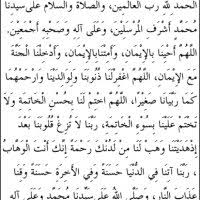 الحَمْدُ للهِ رَبِّ العَالَمِينَ، وَالصَّلَاةُ وَالسَّلَامُ عَلَى سَيِّدِنَا
مُحَمَّدٍ أَشْرَفِ المُرْسَلِينَ، وَعَلَى آلِهِ وَصَحْبِهِ أَجْمَعِينَ.
اللَّهُمَّ أَحْيِنَا بِالإِيمَانِ، وَأَمِتْنَابِالإِيمَانِ، وَأَدْخِلْنَا الجَنَّةَ
مَعَ الإِيمَانِ، اللَّهُمَّ اغْفِرْلَنَا ذُنُوبَنَا وَلِوَالِدَيْنَا وَارْحَمْهُمَا
كَمَا رَبَّيَانَا صَغِيْرًا، اللَّهُمَّ اخْتِمْ لَنَا بِحُسْنِ الخَاتِمَةِ وَلَا
تَخْتِمْ عَلَيْنَا بِسُوْءِ الخَاتِمَةِ، رَبَّنَا لَا تُزِغْ قُلُوبَنَا بَعْدَ
إِذْهَدَيْتَنَا وَهَبْ لَنَا مِنْ لَدُنْكَ رَحْمَةً إِنَّكَ أَنْتَ الوَهَّابُ
رَبَّنَا آتِنَا فِي الدُّنْيَا حَسَنَةً وَفِي الآخِرَةِ حَسَنَةً وَقِنَا
عَذَابَ النَّارِ، وَصَلَّى اللهُ عَلَى سَيِّدِنَا مُحَمَّدٍ وَعَلَى آلِهِ